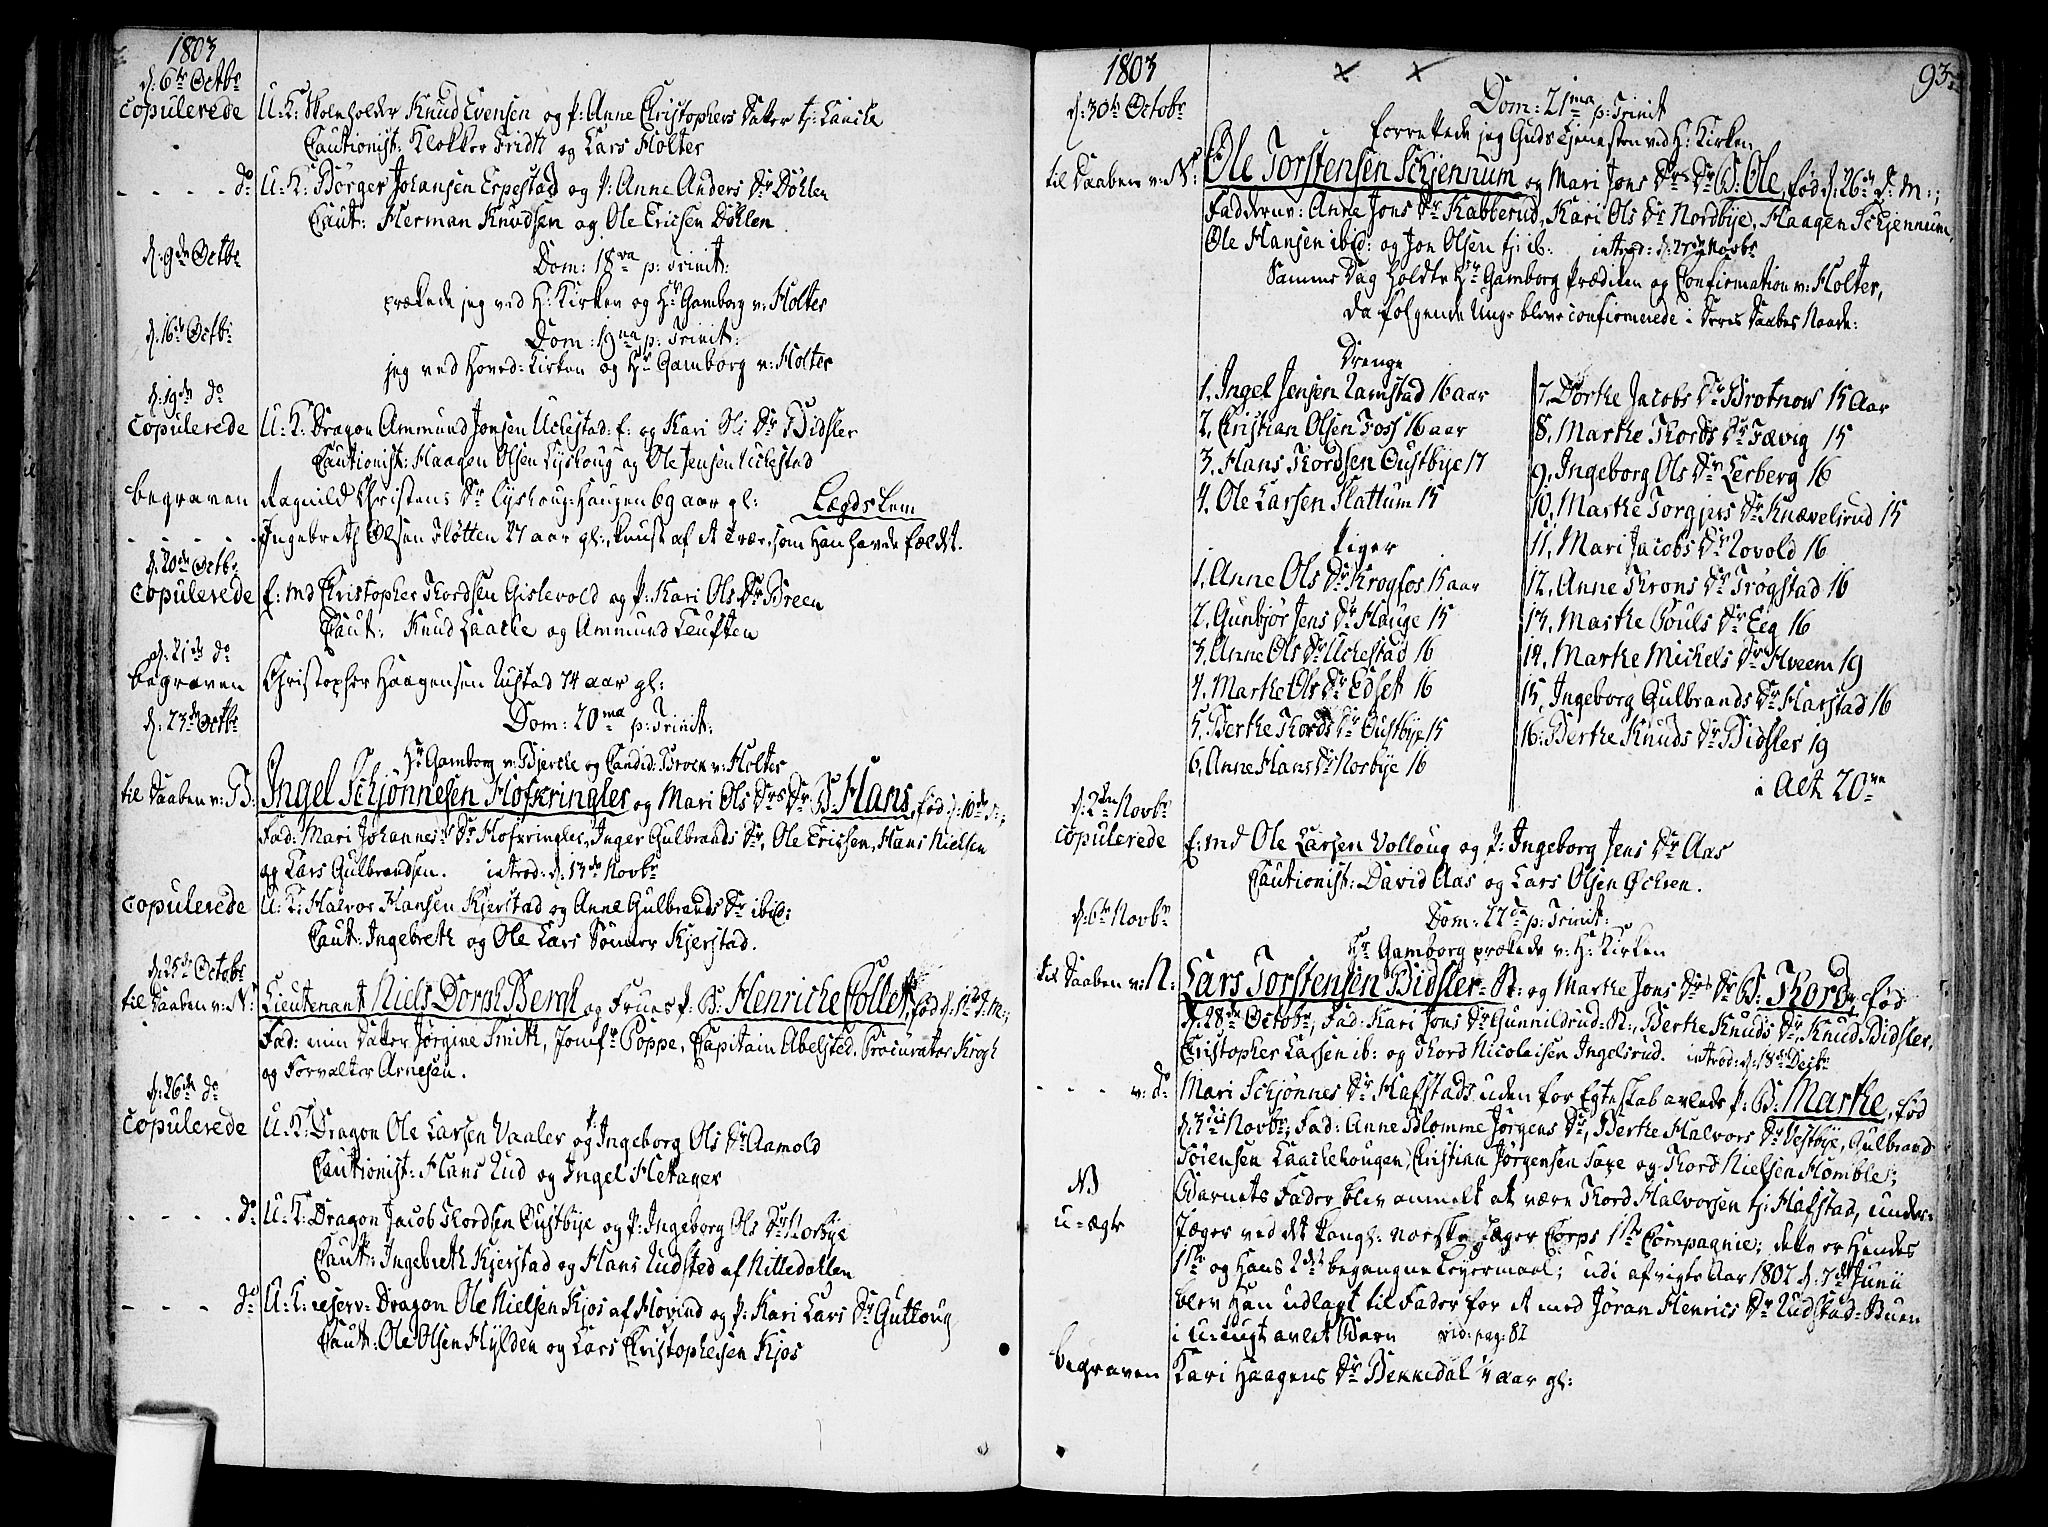 1803
d. 6te Octbr
copulerede U: K: Skoleholder Knud Evensen og P: Anne Christophers Datter tj: Laache
Cautionist: Klokker Fridk og Lars Holter
- - - - do U: K: Børger Johansen Erpestad og P: Anne Anders Dr Døhlen
Caut: Herman Knudsen og Ole Ericsen Døhlen.
d. 9de Octbr
Dom: 18va p: Trinit:
prækede jeg ved H: Kirken og Hr Gamborg v: Holter
d. 16de Octbr
Dom: 19na p: Trinit:
jeg ved Hoved-Kirken og Hr Gamborg v: Holter
d. 19de do
copulerede U: K: Dragon Ammund Jonsen Uckestad: E: og Kari Oli Dr Bidsler
Cautionist: Haagen Olsen Lyshoug og Ole Jensen Uckestad
begraven Ragnild Christens Dr Lyshoug-Haugen 69 aar gl: Lægdslem
- - - - Ingebreth Olsen Fløtten 27 aar gl:, knust af et Træe, som Han havde fældet.
d. 20de Octbr
copulerede E: md Christopher Thordsen Gislevold og P: Kari Ols Dr Breen
Caut: Knud Laache og Ammund Leuften
d. 21de do
begraven Christopher Haagensen Rustad 74 aar gl:
d. 23de Octbr
Dom: 20ma p: Trinit:
Hr Gamborg v: Bjercke og Candid: Brock v: Holter
til Daaben v: B: Ingel Schjønnesen Hofkringler og Mari Ols Drs Dr: B: Hans, fød d. 10de d:;
Fad: Mari Johannes Dr Hofkringler, Inger Gulbrands Dr, Ole Ericsen, Hans Nielsen
og Lars Gulbrandsen. introd: d. 13de Novbr
copulerede U: K: Halvor Hansen Kjerstad og Anne Gulbrands Dr ibid:
Caut: Ingebreth og Ole Lars Sønner Kjerstad.
d. 25de Octobr
til Daaben v: N: Lieutenant Niels Dorph Bergh og Frues P: B: Henriche Collet, fød d. 1ste d. m:;
Fad: min Datter Jørgine Smith, Jomfr Poppe, Capitain Abelsted, Procurator Krogh
og Forvalter Arnesen.
d. 26de do
copulerede U: K: Dragon Ole Larsen Vaaler og P: Ingeborg Ols Dr Aamold
Cautionist: Hans Rud og Ingel Hetager
- - - - do U: K: Dragon Jacob Thordsen Oustbye og P: Ingeborg Ols Dr Norbye
Caut: Ingebreth Kjerstad og Hans Rudsted af Nittedahlen
- - - - do U: K: reserv: Dragon Ole Nielsen Kjos af Hovind og P: Kari Lars Dr Guttoug
Caut: Ole Olsen Hylden og Lars Christophersen Kjos
1803 93
d. 30te Octobr
Dom: 21ma p: Trinit
forrettede jeg Guds Tjenesten ved H: Kirken
til Daaben v: N: Ole Torstensen Schjennum og Mari Jons Drs Dr B: Ole, fød d. 26de d. m:;
Fadderne: Anne Jons Dr Kabberud, Kari Ols Dr Nordbye, Haagen Schjennum,
Ole Hansen ibid: og Jon Olsen tj: ib: introd: d. 27de Novbr
Samme Dag holdte Hr Gamborg Prædiken og Confirmation v: Holter,
da følgende Unge bleve confirmerede i Deres Daabes Naade:
Drenge
1, Ingel Jensen Ramstad 16 aar
2, Christian Olsen Foss 16 aar
3, Hans Thordsen Oustbye 17
4. Ole Larsen Slattum 15
Piger
1, Anne Ols Dr Krogfos 15 aar
2, Gunbjør Jens Dr Hauge 15
3, Anne Ols Dr Uckestad 16
4. Marthe Ols Dr Edset 16
5. Berthe Thords Dr Oustbye 15
6, Anne Hans Dr Norbye 16
7, Dorthe Jacobs Dr Brotnow 15 Aar
8, Marthe Thords Dr Fævig 15
9, Ingeborg Ols Dr Lerberg 16
10, Marthe Torgjers Dr Knævelsrud 15
11, Mari Jacobs Dr Rovold 16
12, Anne Throns Dr Trøgstad 16
13, Marthe Pouls Dr Eeg 16
14, Marthe Michels Dr Hveem 19
15, Ingeborg Gulbrands Dr Harstad 16
16: Berthe Knuds Dr Bidsler 19
i Alt 20ve
d. 2den Novbr
copulerede E: md Ole Larsen Volloug og P: Ingeborg Jens Dr Aas
Cautionist: David Aas og Lars Olsen Øchren.
d. 6te Novbr
Dom: 22da p: Trinit:
Hr Gamborg prækede v: H: Kirken
til Daaben v: N: Lars Torstensen Bidsler-St: og Marthe Jons Drs Dr B: Thord, fød
d. 28de Octobr, Fad: Kari Jons Dr Gunnildrud-N:, Berthe Knuds Dr, Knud Bidsler,
Christopher Larsen ib: og Thord Nicolaisen Ingelsrud. introd: d. 18de Decbr
- - - v: do Mari Schjønnes Dr Hafstads uden for Egteskab avlede P: B: Marthe, fød
d. 3die Novbr; Fad: Anne Blomme Jørgens Dr, Berthe Halvors Dr Vestbye, Gulbrand
Sørensen Laachehougen, Christian Jørgensen Saxe og Thord Nielsen Homble;
NB Barnets Fader blev anmelt at være Thord Halvorsen tj: Hafstad, under-
u-ægte Jæger ved det kongl: norske Jæger Corps 1ste Compagnie; dette er Hendes
1ste og Hans 2det begangne Leyermaal; udi afvigte Aar 1802 d. 7de Junii
blev Han udlagt til Fader for et med Jøran Henrics Dr Rudstad-Buen
i U-tugt avlet Barn vid: pag: 82
begraven Kari Haagens Dr Bekkedal ¼ aar gl: